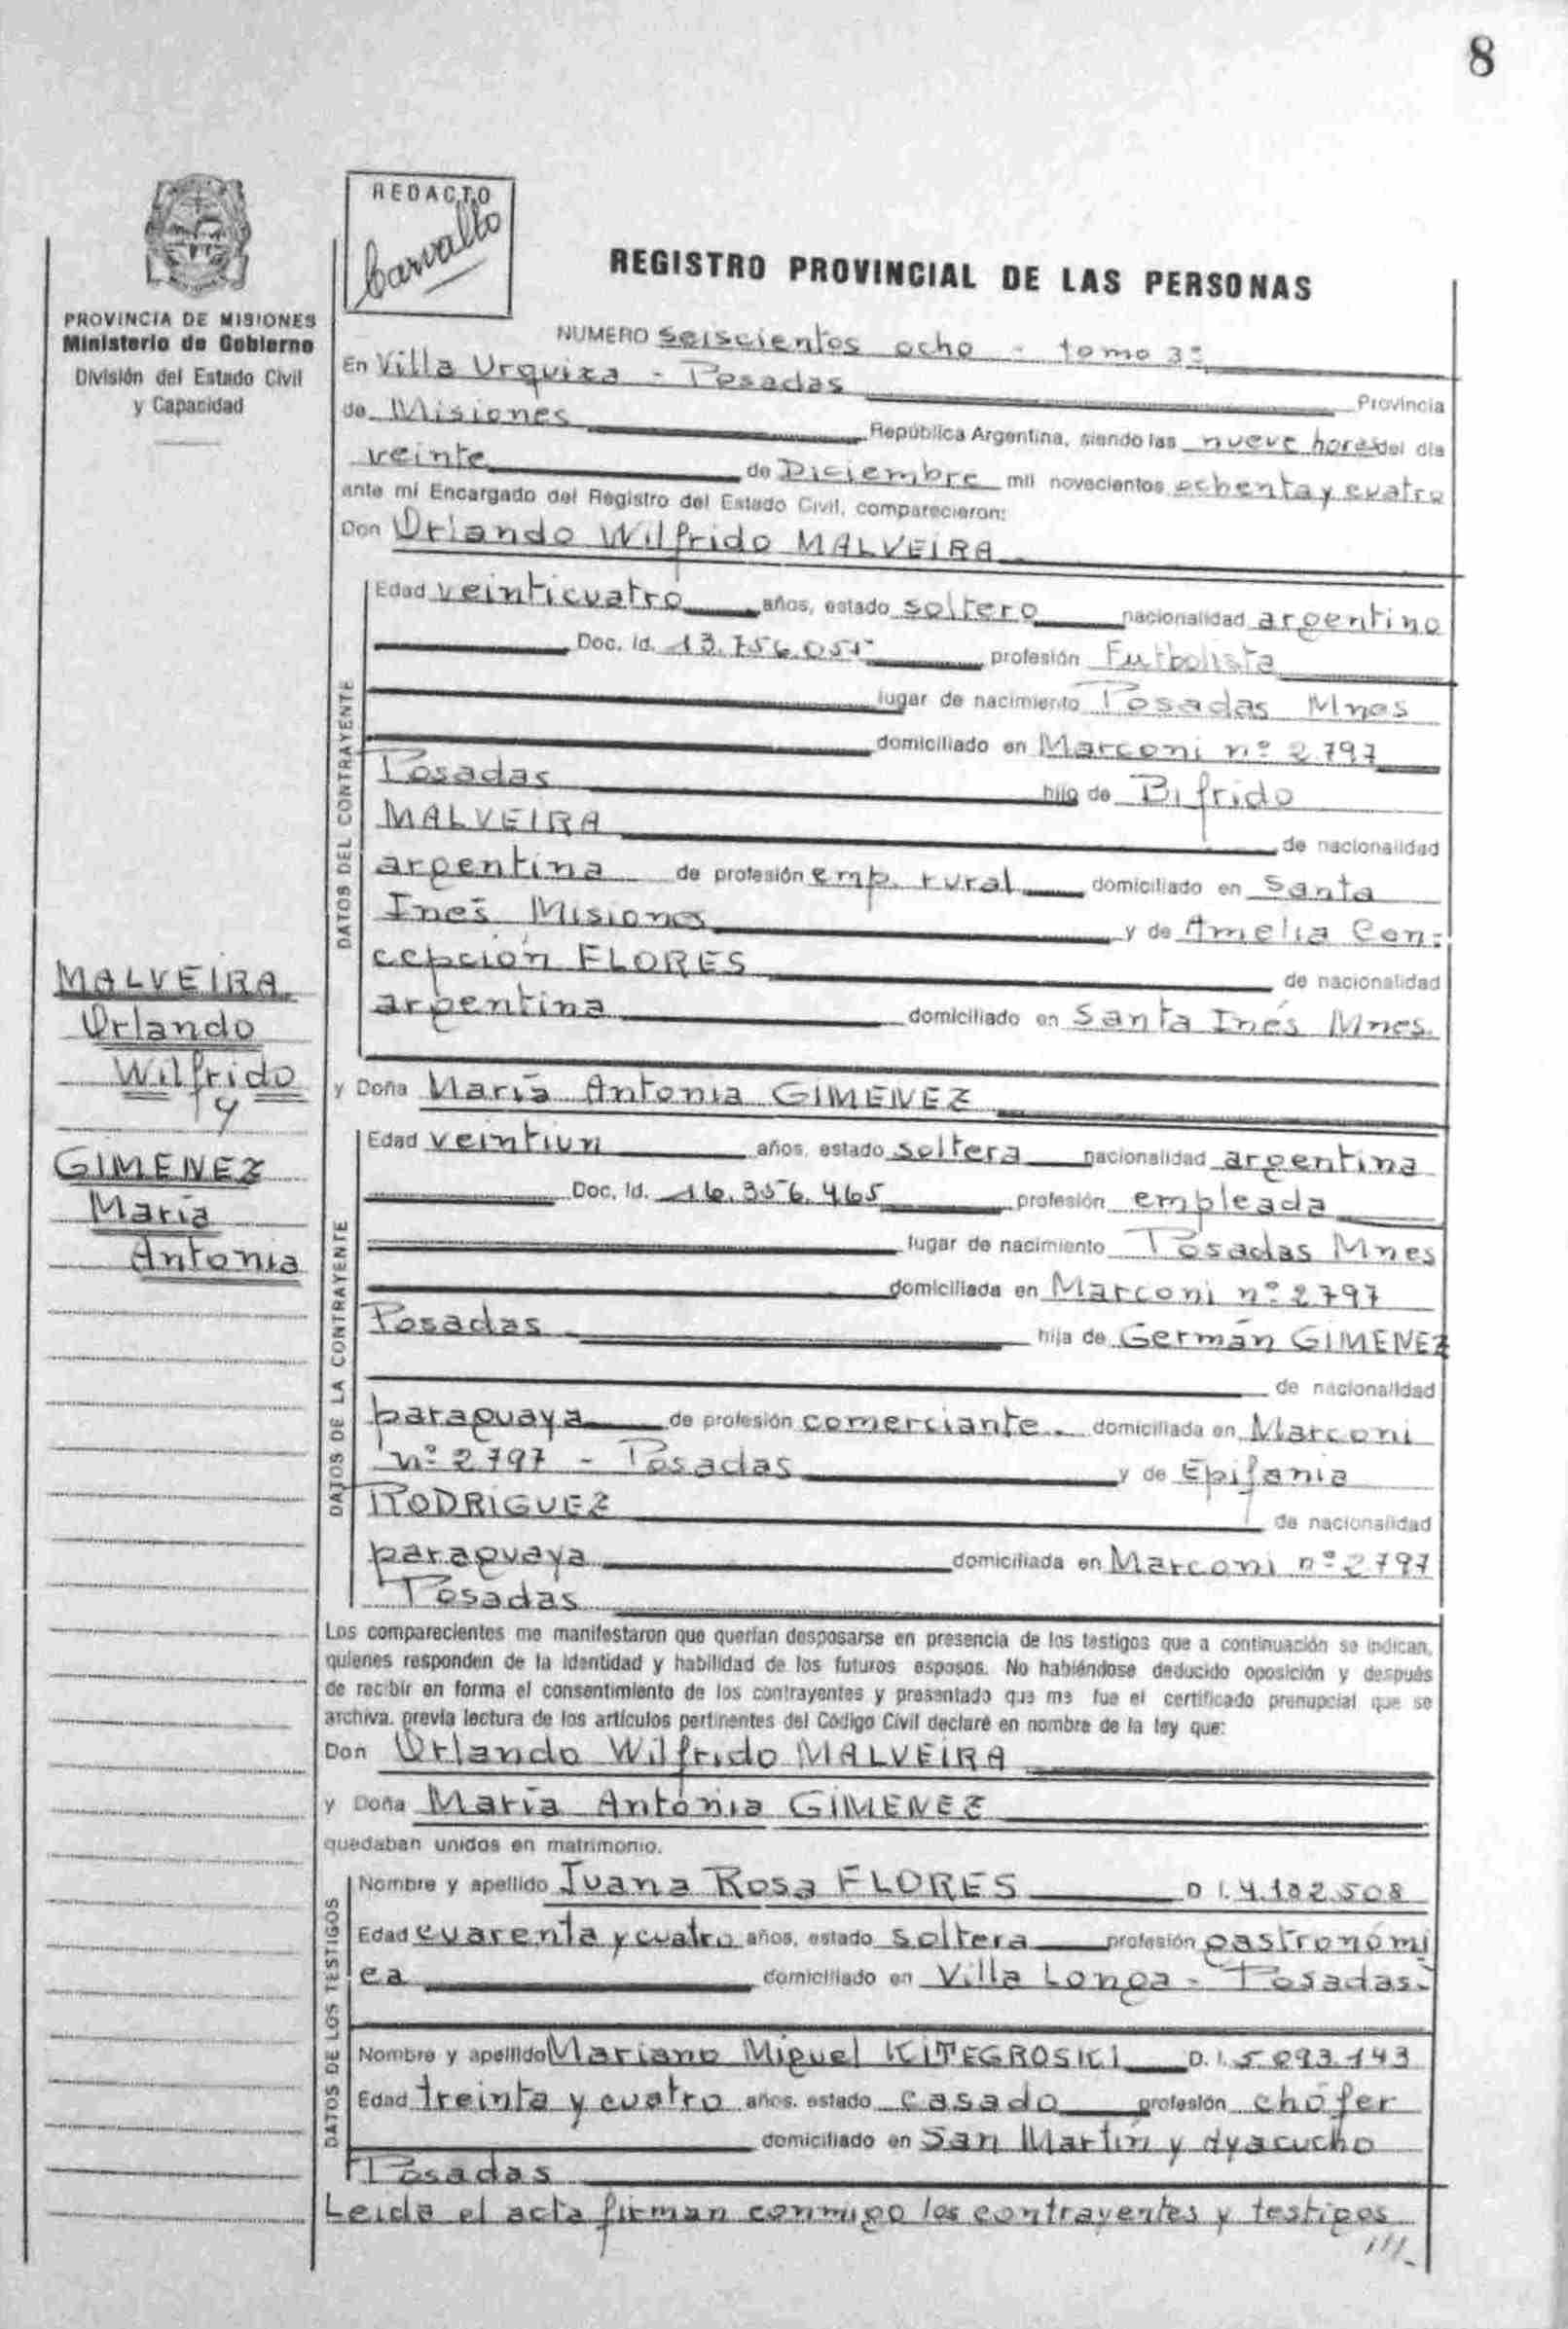 8
REDACTO
Carvallo
PROVINCIA DE MISIONES
Ministerio de Gobierno
División del Estado Civil
y Capacidad
REGISTRO PROVINCIAL DE LAS PERSONAS
NUMERO seiscientos ocho - tomo 3º
En Villa Urquiza - Posadas Provincia
de Misiones República Argentina, siendo las nueve horas del día
veinte de Diciembre mil novecientos ochenta y cuatro
ante mí Encargado del Registro del Estado Civil, comparecieron:
Don Orlando Wilfrido MALVEIRA
DATOS DEL CONTRAYENTE
Edad veinticuatro años, estado soltero nacionalidad argentino
Doc. Id. 13.756.055 profesión Futbolista
lugar de nacimiento Posadas Mnes
domiciliado en Marconi nº 2797
Posadas hijo de Bifrido
MALVEIRA de nacionalidad
argentina de profesión emp. rural domiciliado en Santa
Inés Misiones y de Amelia Con-
cepción FLORES de nacionalidad
argentina domiciliado en Santa Inés Mnes.
MALVEIRA
Orlando
Wilfrido
y
GIMENEZ
María
Antonia
y Doña María Antonia GIMENEZ
DATOS DE LA CONTRAYENTE
Edad veintiun años, estado soltera nacionalidad argentina
Doc. Id. 16.356.465 profesión empleada
lugar de nacimiento Posadas Mnes
domiciliada en Marconi nº 2797
Posadas hija de Germán GIMENEZ
de nacionalidad
paraguaya de profesión comerciante domiciliada en Marconi
nº 2797 - Posadas y de Epifania
RODRIGUEZ de nacionalidad
paraguaya domiciliada en Marconi nº 2797
Posadas
Los comparecientes me manifestaron que querían desposarse en presencia de los testigos que a continuación se indican,
quienes responden de la identidad y habilidad de los futuros esposos. No habiéndose deducido oposición y después
de recibir en forma el consentimiento de los contrayentes y presentado que me fue el certificado prenupcial que se
archiva, previa lectura de los artículos pertinentes del Código Civil declaré en nombre de la ley que:
Don Orlando Wilfrido MALVEIRA
y Doña María Antonia GIMENEZ
quedaban unidos en matrimonio.
DATOS DE LOS TESTIGOS
Nombre y apellido Juana Rosa FLORES D I. 4.182.508
Edad cuarenta y cuatro años, estado soltera profesión gastronómi
ca domiciliado en Villa Longa - Posadas-
Nombre y apellido Mariano Miguel KITEGROSKI D. I. 5 093.143
Edad treinta y cuatro años, estado casado profesión chófer
domiciliado en San Martín y Ayacucho
Posadas
Leída el acta firman conmigo los contrayentes y testigos
///-